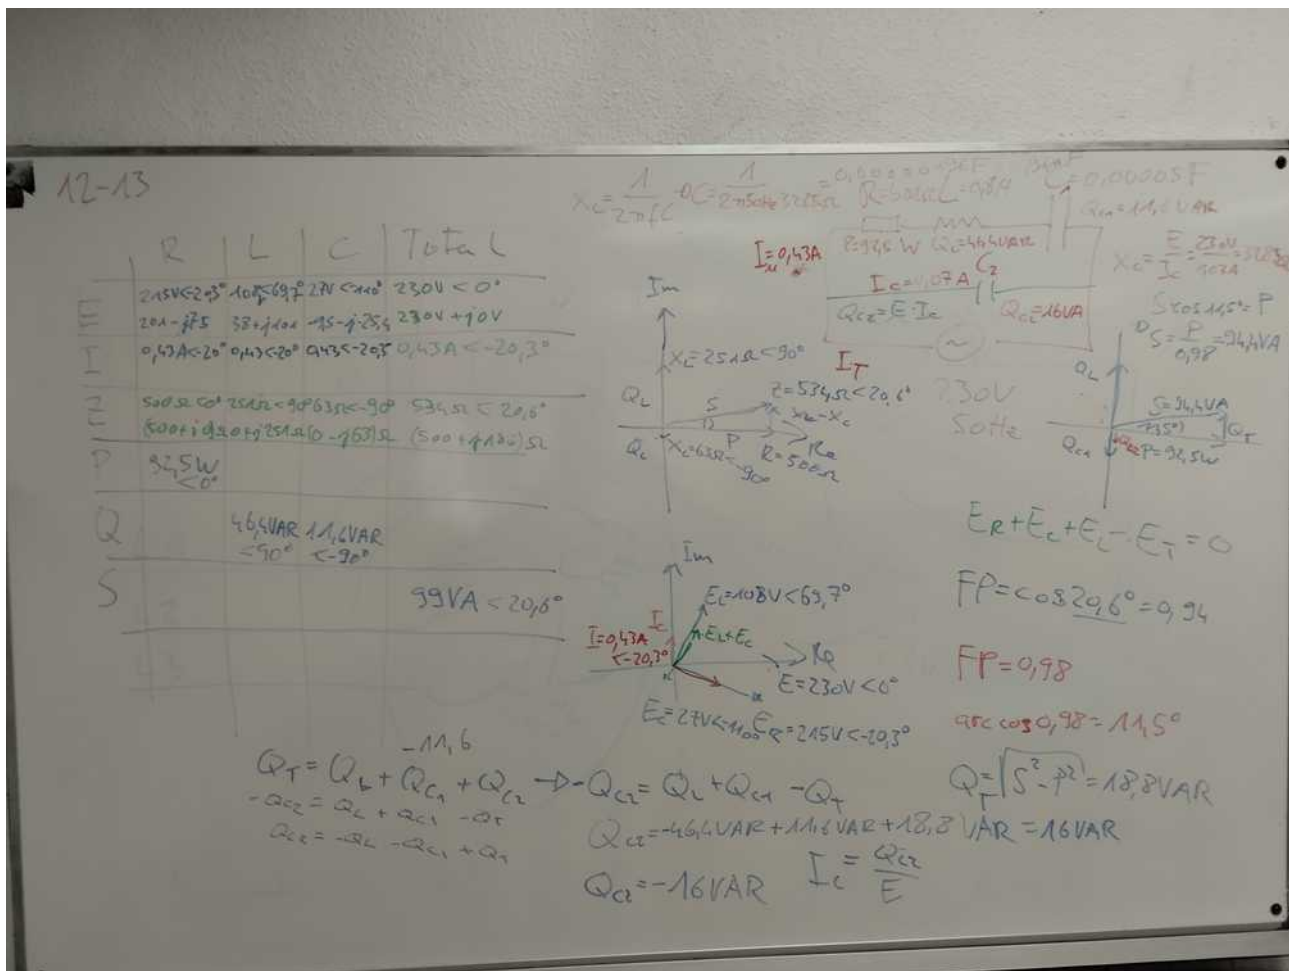 12-13
R | L | C | Total
E
215V<-20,3° 108V<69,7° 27V<-110° 230V<0°
201-j75 38+j101 -9,5-j-25,4 230V+j0V
I 0,43A<-20° 0,43<-20° 0,43<-20,3 0,43A<-20,3°
Z 500Ω<0° 251Ω<90° 63Ω<-90° 534Ω<20,6°
P 92,5W
<0°
Q 46,4VAR 11,6VAR
<90° <-90°
S 99VA<20,6°
Xc=1/2πfC
C=0,00005F
Qc1=11,6VAR
P=92,5W QL=46,4VAR
I=0,43A
C2
Ic=0,07A
Qc2=E·Ic
Qc2=16VA
IT
230V
50Hz
Xc=E/Ic=
S·cos11,5°=P
S=P/0,98=94,4VA
Im
XL=251Ω<90°
Z=534Ω<20,6°
XL-Xc
QL
S
P
Re
Qc
Xc=63Ω<-90°
R=500Ω
QL
S=94,4VA
QT
Qc1
Qc2
P=92,5W
ER+Ec+EL-ET=0
FP=cos20,6°=0,94
FP=0,98
arccos0,98=11,5°
QT=√S²-P²=18,8VAR
Im
EL=108V<69,7°
Ic
EL+Ec
I=0,43A
<-20,3°
Re
E=230V<0°
Ec=27V<-110°
ER=215V<-20,3°
-11,6
QT=QL+Qc1+Qc2 → -Qc2=QL+Qc1-QT
-Qc2=QL+Qc1-QT
Qc2=-QL-Qc1+QT
Qc2=-46,4VAR+11,6VAR+18,8VAR=16VAR
Qc2=-16VAR
Ic=Qc2/E